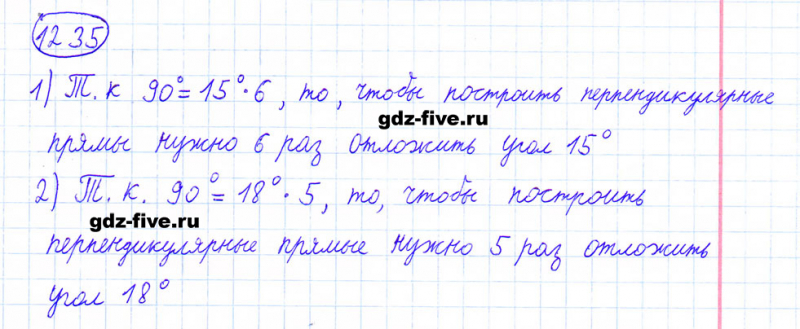 1235
1) Т.к 90°=15°·6, то, чтобы построить перпендикулярные
gdz-five.ru
прямы нужно 6 раз отложить угол 15°
2) Т.к. 90°=18°·5, то, чтобы построить
gdz-five.ru
перпендикулярные прямые нужно 5 раз отложить
угол 18°